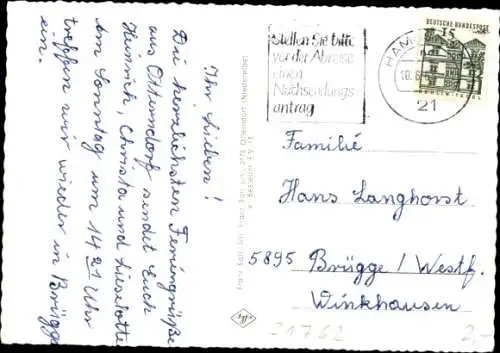 Ihr Lieben!
Die herzlichsten Feriengrüße
aus Otterndorf sendet Euch
Heinrich, Christa und Liselotte
Am Sonntag um 14 21 Uhr
treffen wir wieder in Brügge
ein.
Stellen Sie bitte
vor der Abreise
einen
Nachsendungs-
antrag
HAM
21
DEUTSCHE BUNDESPOST
15
Familie
Hans Langhorst
5895 Brügge/Westf.
Winkhausen
21762
2,-